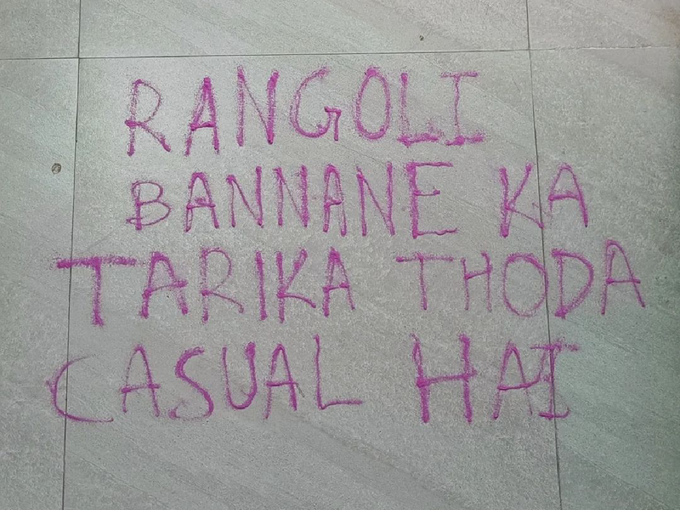 RANGOLI
BANNANE KA
TARIKA THODA
CASUAL HAI